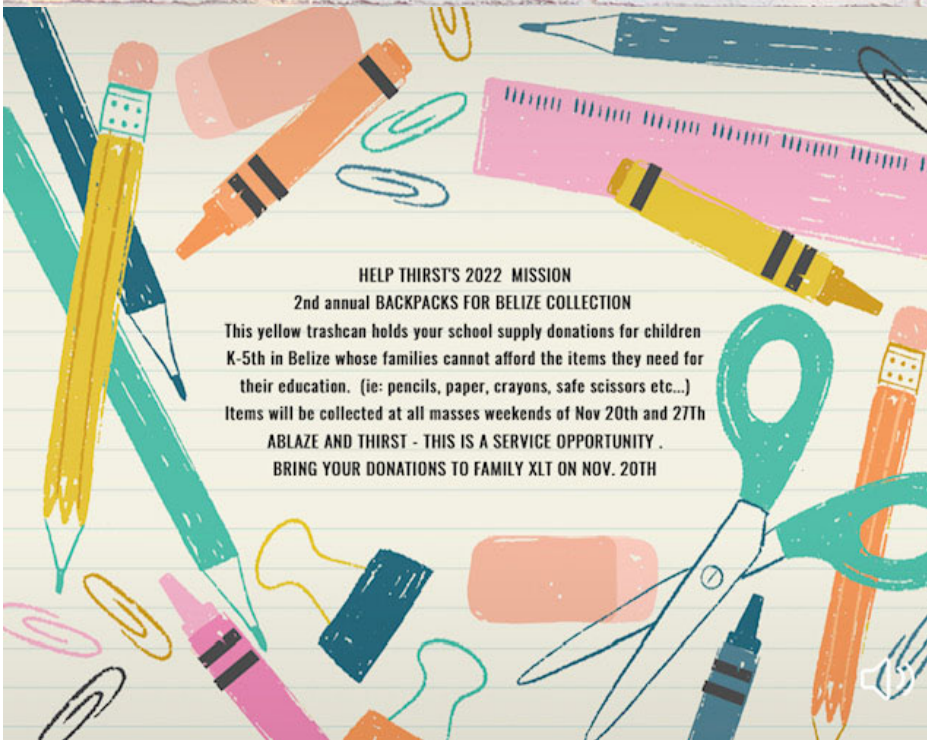 HELP THIRST'S 2022 MISSION
2nd annual BACKPACKS FOR BELIZE COLLECTION
This yellow trashcan holds your school supply donations for children
K-5th in Belize whose families cannot afford the items they need for
their education. (ie: pencils, paper, crayons, safe scissors etc...)
Items will be collected at all masses weekends of Nov 20th and 27Th
ABLAZE AND THIRST - THIS IS A SERVICE OPPORTUNITY .
BRING YOUR DONATIONS TO FAMILY XLT ON NOV. 20TH